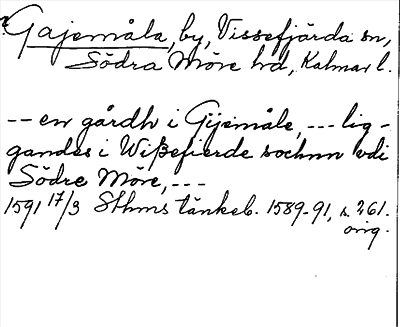 Gajemåla, by, Vissefjärda sn,
Södra Möre hd, Kalmar l.
-- en gårdh i Gijemåle, --- lig-
gandes i Wißefierde sochnn vdi
Södre Möre, ---
1591 17/3 Sthms tänkeb. 1589-91, s. 261.
orig.